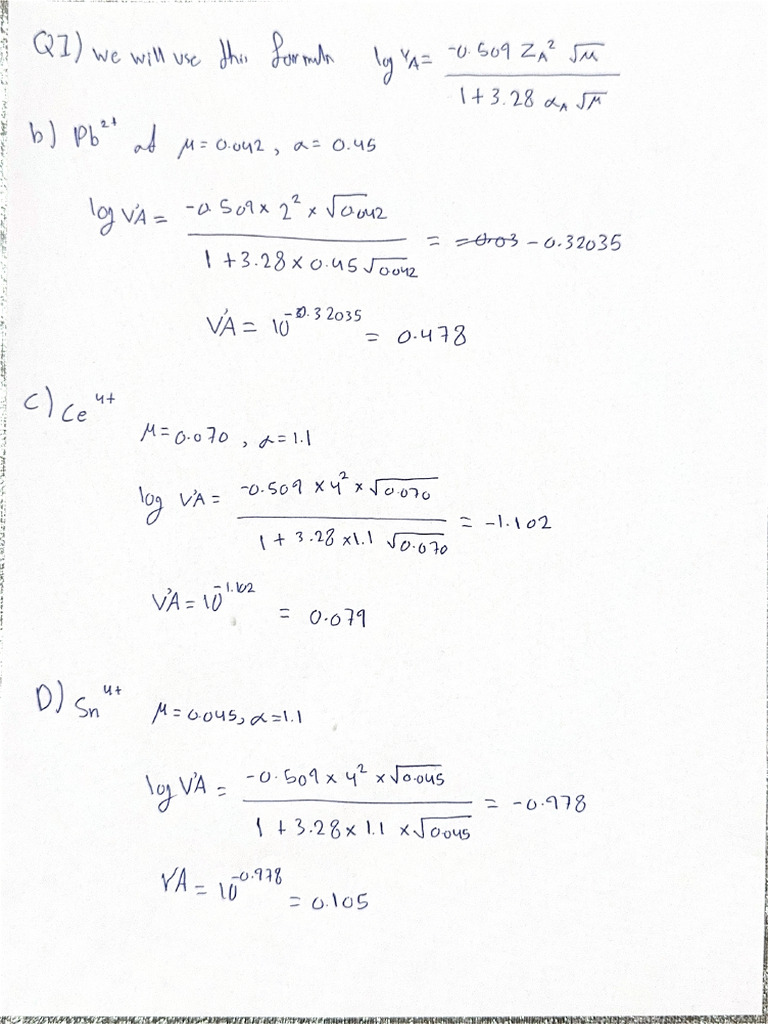 Q1) we will use this formula log γA = -0.509 ZA² √μ / 1 + 3.28 αA √μ
b) Pb²⁺ at μ = 0.042, α = 0.45
log γA = -0.509 × 2² × √0.042 / 1 + 3.28 × 0.45 √0.042 = -0.03 - 0.32035
γA = 10^-0.32035 = 0.478
C) Ce⁴⁺
μ = 0.070, α = 1.1
log γA = -0.509 × 4² × √0.070 / 1 + 3.28 × 1.1 √0.070 = -1.102
γA = 10^-1.102 = 0.079
D) Sn⁴⁺ μ = 0.045, α = 1.1
log γA = -0.509 × 4² × √0.045 / 1 + 3.28 × 1.1 × √0.045 = -0.978
γA = 10^-0.978 = 0.105